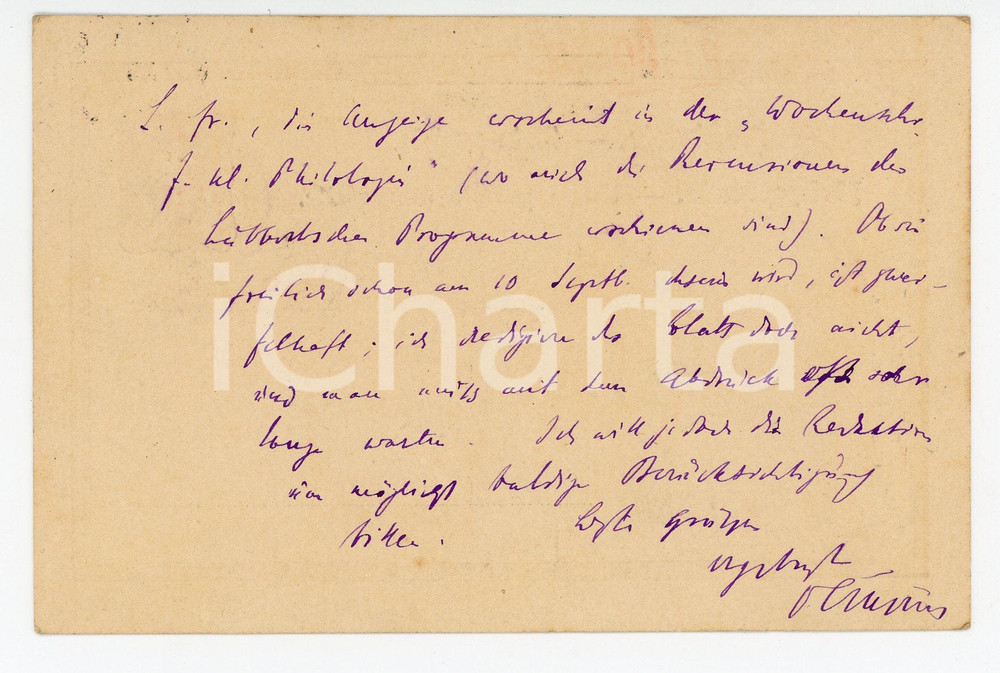 L. Fr., die Anzeige erscheint in der „Wochenschr.
f. kl. Philologie" (wo auch die Recensionen der
Programme erschienen sind). Ob sie
freilich schon am 10 Septb. da sein wird, ist zwei-
felhaft; ich redigiere das Blatt doch nicht,
und man muss mit dem Abdruck oft sehr
lange warten. Ich will jedoch die Redaktion
um möglichst baldige Berücksichtigung
bitten. Beste Grüsse
ergebenst
iCharta